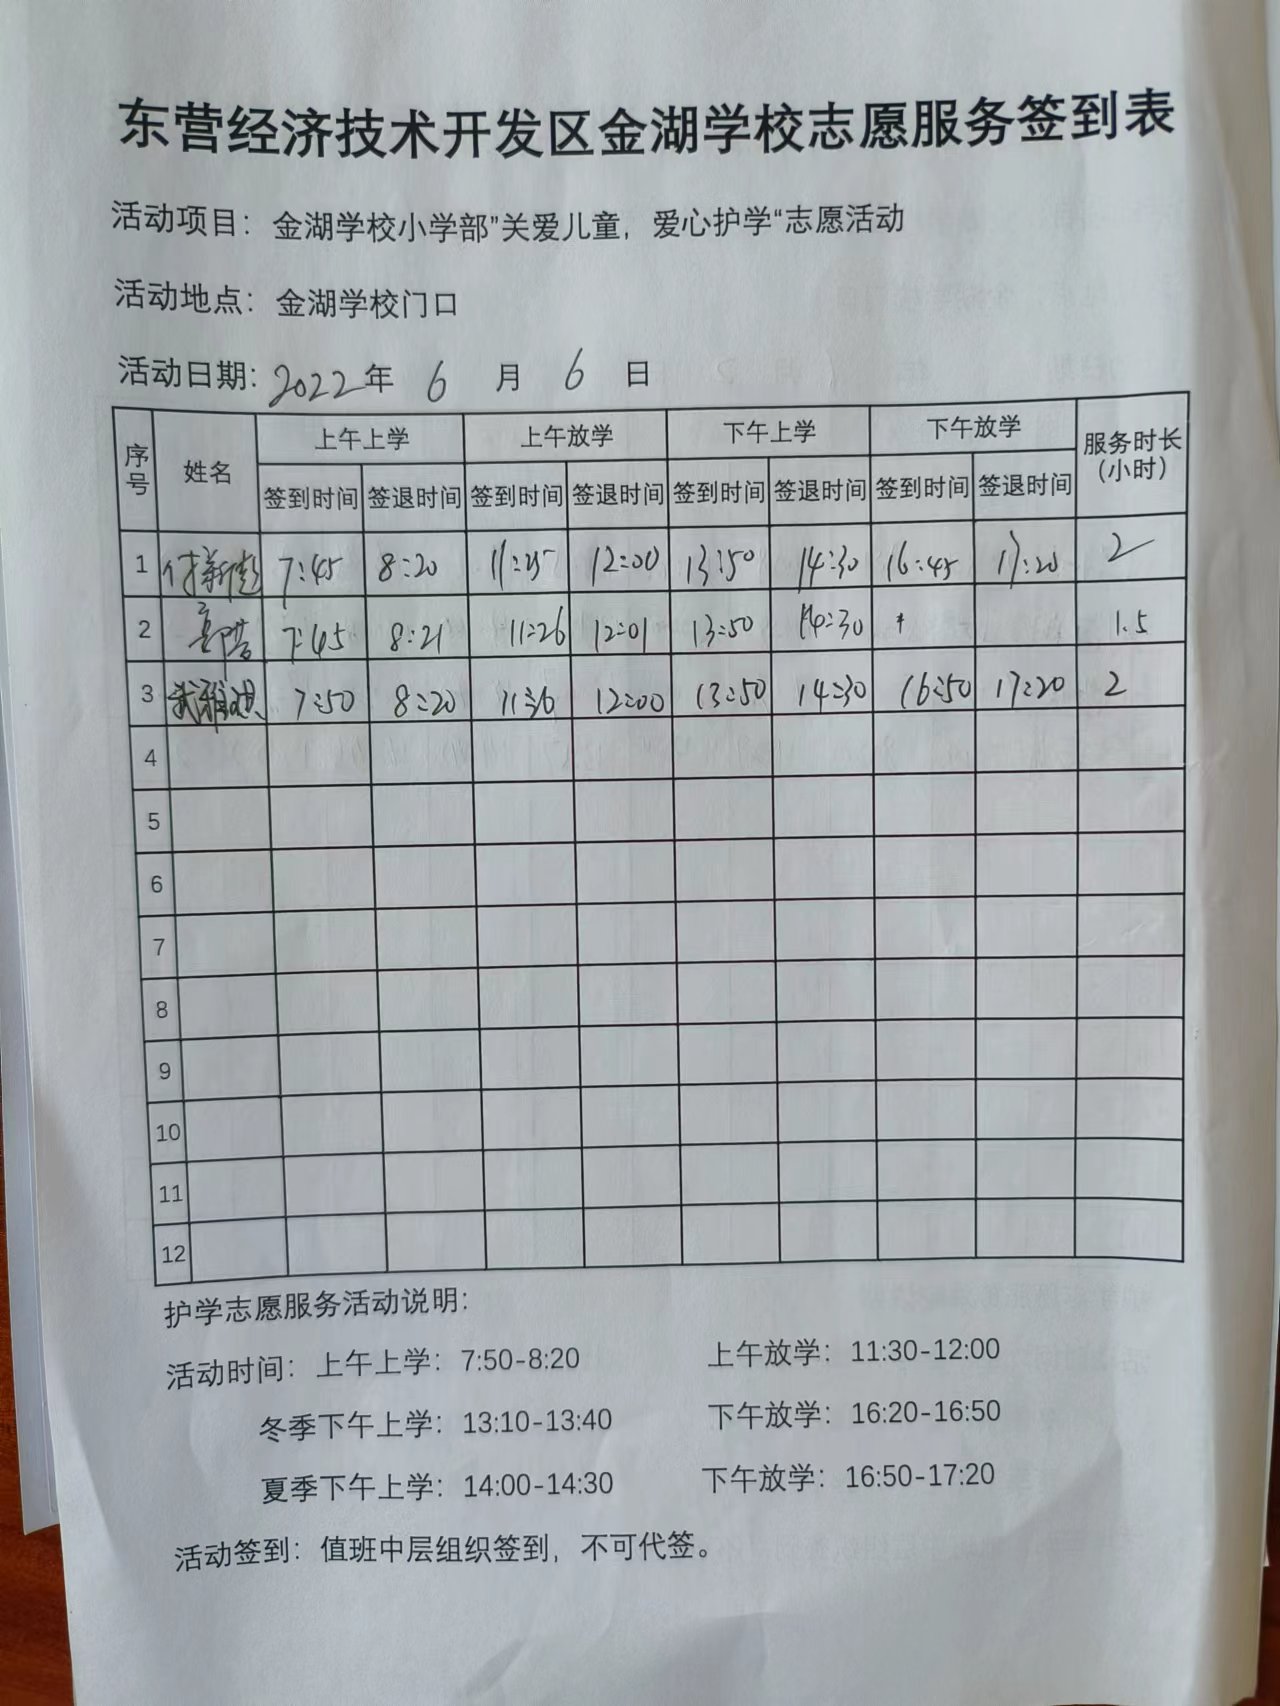 东营经济技术开发区金湖学校志愿服务签到表
活动项目：金湖学校小学部”关爱儿童，爱心护学“志愿活动
活动地点：金湖学校门口
活动日期：2022年 6 月 6 日
序号 姓名 上午上学 上午放学 下午上学 下午放学 服务时长（小时）
签到时间 签退时间 签到时间 签退时间 签到时间 签退时间 签到时间 签退时间
1 7:45 8:20 12:00 13:50 14:30 16:45 17:20 2
2 7:45 8:21 11:26 12:01 13:50 14:30 1.5
3 7:50 8:20 12:00 13:50 14:30 16:50 17:20 2
4
5
6
7
8
9
10
11
12
护学志愿服务活动说明：
活动时间：上午上学：7:50-8:20 上午放学：11:30-12:00
冬季下午上学：13:10-13:40 下午放学：16:20-16:50
夏季下午上学：14:00-14:30 下午放学：16:50-17:20
活动签到：值班中层组织签到，不可代签。